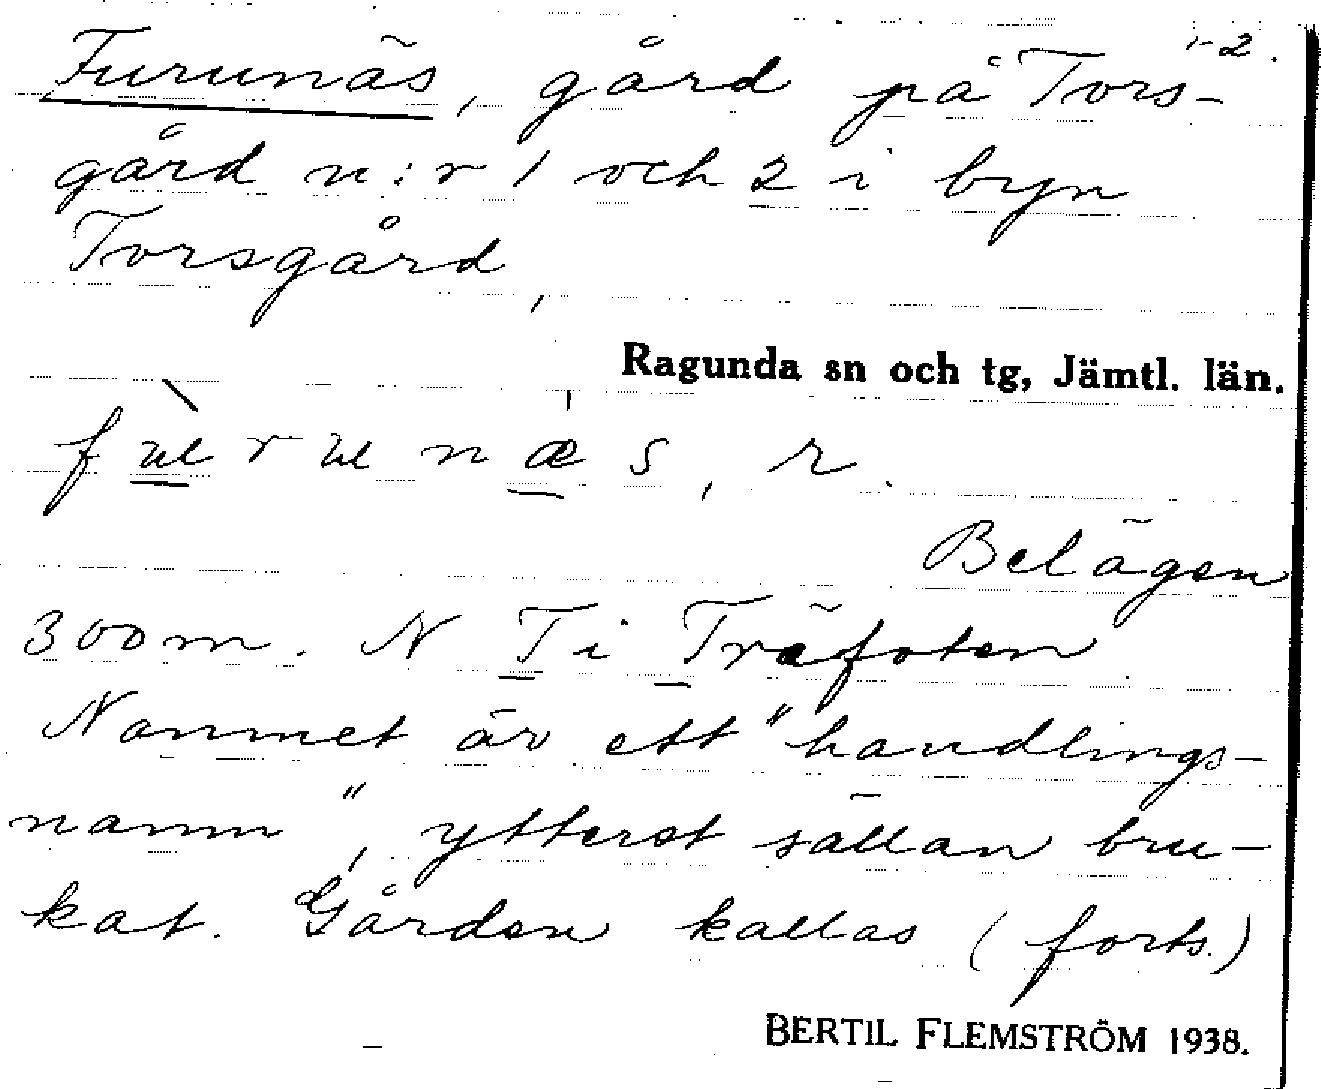 1-2.
Furunäs, gård på Tors-
gård n:r 1 och 2 i byn
Torsgård,
Ragunda sn och tg, Jämtl. län.
fùrunæs, r.
Belägen
300 m. N T i Träfoten.
Namnet är ett "handlings-
namn", ytterst sällan bru-
kat. Gården kallas (forts.)
BERTIL FLEMSTRÖM 1938.